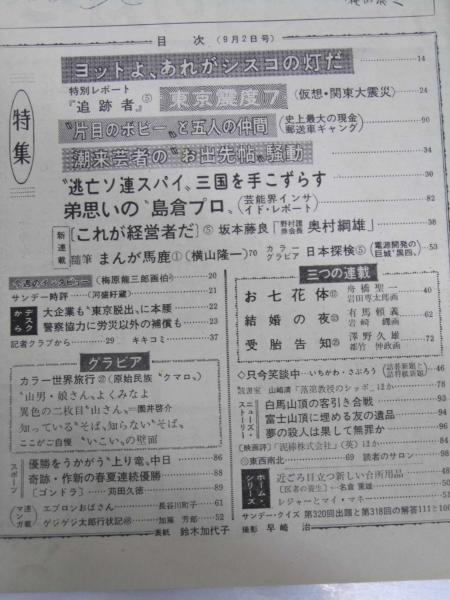 目 次 (9月2日号)
特集
ヨットよ、あれがシスコの灯だ 14
特別レポート『追跡者』⑤ 東京震度7 (仮想・関東大震災) 24
"片目のボビー"と五人の仲間 (史上最大の現金郵送車ギャング) 90
潮来芸者の"お出先帖"騒動 34
"逃亡ソ連スパイ"三国を手こずらす 30
弟思いの"島倉プロ" (芸能界インサイド・レポート) 12
新連載 [これが経営者だ] ⑤ 坂本藤良「野村證券会長 奥村綱雄」 38
随筆 まんが馬鹿① (横山隆一) 70
カラーグラビア 日本探検⑤ (電源開発の巨城"黒四") 53
今週のインタビュー (梅原龍三郎画伯) 20
サンデー時評 (河盛好蔵) 21
デスクから
大企業も"東京脱出"に本腰 22
警察協力に労災以外の補償も 23
記者クラブから 29
キキコミ 37
三つの連載
お七花体 舟橋聖一 岩田専太郎画 40
結婚の夜 有馬頼義 岩崎鐸画 62
受胎告知 澤野久雄 都竹伸政画 72
グラビア
カラー世界旅行 (原始民族"クマロ")
"山男・娘さん"よくみなよ
異色の二枚目"山さん"―園井啓介
知っている"そば、知らない"そば
ここがご自慢 "いこい"の壁面
◇只今笑談中 いちかわ・さぶろう (詰碁新題と詰将棋新題) 46
読書室 山崎満「落第教授のシッポ」ほか 76
ニューズ・ストーリー
白馬山頂の客引き合戦 93
富士山頂に埋める友の遺品 94
夢の殺人は果して無罪か 96
[映画評]「泥棒株式会社」(英)ほか 84
東西南北 69
読者のサロン 98
スポーツ
優勝をうかがう"上り竜"中日 86
奇跡・作新の春夏連続優勝 88
[ゴンドラ] 苅田久徳 89
マンガ連載
エプロンおばさん 長谷川町子 61
ゲジゲジ太郎行状記 加藤芳郎 52
ホーム・シリーズ
近ごろ目立つ新しい台所用品 48
[医者の養生] 名倉重雄 50
レジャーとマイ・マネー 51
サンデー・クイズ 第320回出題と第318回の解答 111と10
表紙 鈴木加代子 撮影 早崎 治